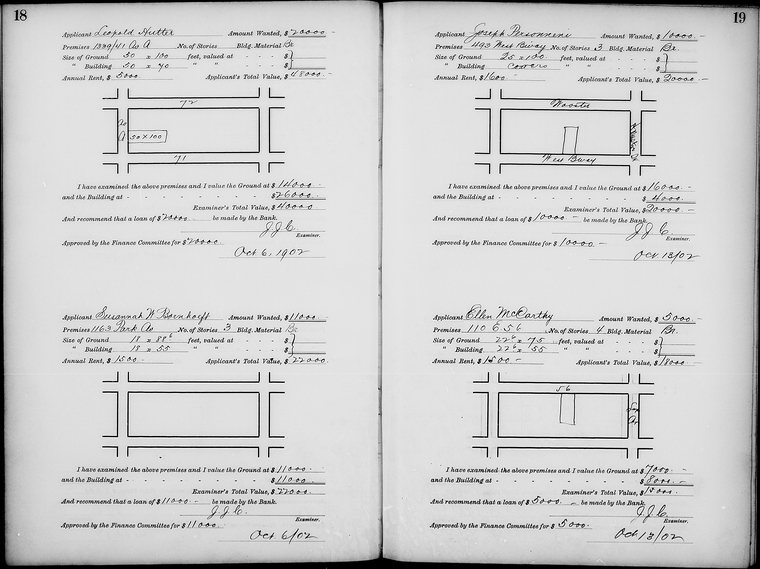 18
Applicant Leopold Hutter Amount Wanted, $ 20000 -
Premises 1339/41 Av A No. of Stories Bldg. Material Br
Size of Ground 50 x 100 feet, valued at - - - $
" Building 50 x 90 " " - - - $
Annual Rent, $ 5000 Applicant's Total Value, $ 48000 -
72
Av A
50 x 100
71
I have examined the above premises and I value the Ground at $ 14000 -
and the Building at - - - - - - - - $ 26000 -
Examiner's Total Value, $ 40000
And recommend that a loan of $ 20000 - be made by the Bank.
J.J.C.
Examiner.
Approved by the Finance Committee for $ 20000
Oct 6, 1902
Applicant Susannah W Amount Wanted, $ 11000 -
Premises 1163 Park Av No. of Stories 3 Bldg. Material Br
Size of Ground 18 x 88⁶ feet, valued at - - - $
" Building 18 x 55 " " - - - $
Annual Rent, $ 1500 - Applicant's Total Value, $ 22000
I have examined the above premises and I value the Ground at $ 11000 -
and the Building at - - - - - - - - $ 11000 -
Examiner's Total Value, $ 22000
And recommend that a loan of $ 11000 - be made by the Bank.
J.J.C.
Examiner.
Approved by the Finance Committee for $ 11000
Oct 6/02
19
Applicant Joseph Personneni Amount Wanted, $ 10000 -
Premises 493 West Bway No. of Stories 3 Bldg. Material Br.
Size of Ground 25 x 100 feet, valued at - - - $
" Building covers " " - - - $
Annual Rent, $ 1600 Applicant's Total Value, $ 20000 -
Wooster
West Bway
I have examined the above premises and I value the Ground at $ 16000 -
and the Building at - - - - - - - - $ 4000 -
Examiner's Total Value, $ 20000 -
And recommend that a loan of $ 10000 - be made by the Bank.
J.J.C.
Examiner.
Approved by the Finance Committee for $ 10000 -
Oct 13/02
Applicant Ellen McCarthy Amount Wanted, $ 5000 -
Premises 110 E 56 No. of Stories 4 Bldg. Material Br.
Size of Ground 22⁶ x 75 feet, valued at - - - $
" Building 22⁶ x 55 " " - - - $
Annual Rent, $ 1500 - Applicant's Total Value, $ 18000 -
56
I have examined the above premises and I value the Ground at $ 7000 - -
and the Building at - - - - - - - - $ 8000 -
Examiner's Total Value, $ 15000 -
And recommend that a loan of $ 5000 - be made by the Bank.
J.J.C.
Examiner.
Approved by the Finance Committee for $ 5000 -
Oct 13/02